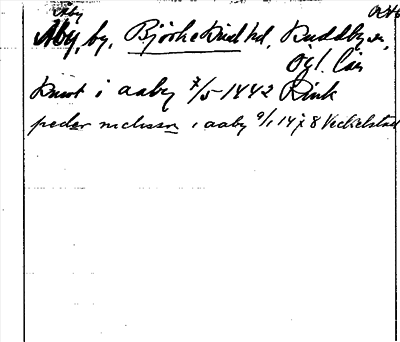 Åby
Åby, by, Björkekind hd, Kuddby sn,
Ög l. län
Knut i aaby 7/5 1442 Rink
peder niclisson i aaby 9/1 1478 Veckelstad